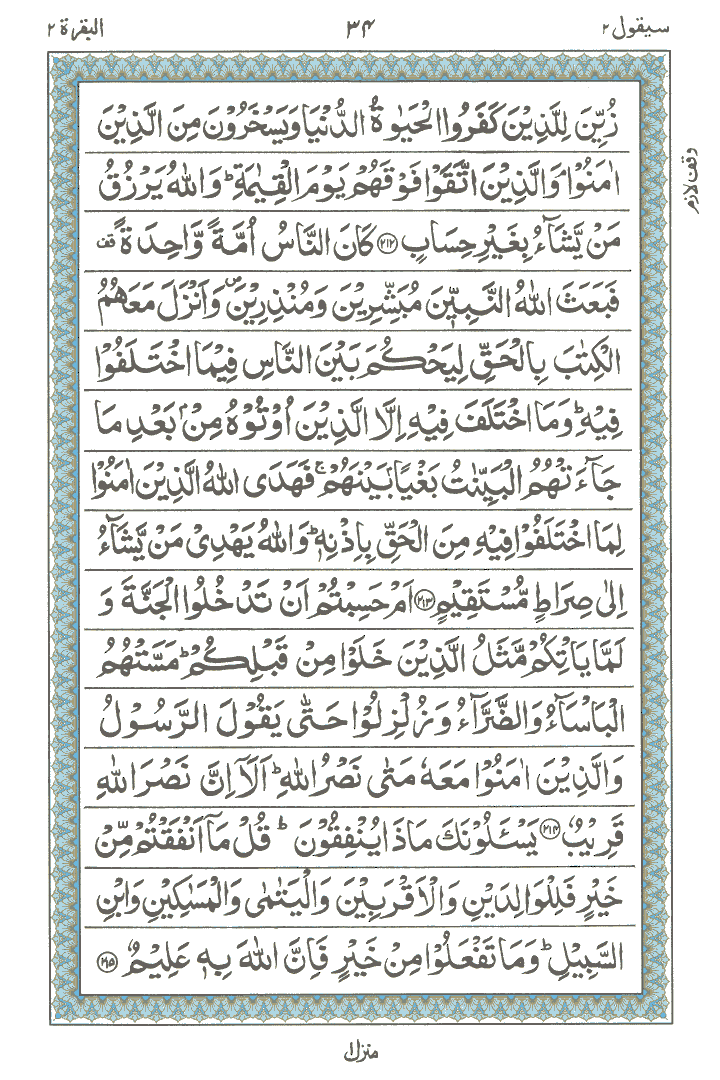 سیقول ۲
۳۴
البقرة ۲
وقف لازم
زُيِّنَ لِلَّذِيْنَ كَفَرُوا الْحَيٰوةُ الدُّنْيَا وَيَسْخَرُوْنَ مِنَ الَّذِيْنَ
اٰمَنُوْا ۘ وَالَّذِيْنَ اتَّقَوْا فَوْقَهُمْ يَوْمَ الْقِيٰمَةِ ؕ وَاللّٰهُ يَرْزُقُ
مَنْ يَّشَآءُ بِغَيْرِ حِسَابٍ ﴿۲۱۲﴾ كَانَ النَّاسُ اُمَّةً وَّاحِدَةً قف
فَبَعَثَ اللّٰهُ النَّبِيّٖنَ مُبَشِّرِيْنَ وَمُنْذِرِيْنَ ۪ وَاَنْزَلَ مَعَهُمُ
الْكِتٰبَ بِالْحَقِّ لِيَحْكُمَ بَيْنَ النَّاسِ فِيْمَا اخْتَلَفُوْا
فِيْهِ ؕ وَمَا اخْتَلَفَ فِيْهِ اِلَّا الَّذِيْنَ اُوْتُوْهُ مِنْۢ بَعْدِ مَا
جَآءَتْهُمُ الْبَيِّنٰتُ بَغْيًۢا بَيْنَهُمْ ۚ فَهَدَى اللّٰهُ الَّذِيْنَ اٰمَنُوْا
لِمَا اخْتَلَفُوْا فِيْهِ مِنَ الْحَقِّ بِاِذْنِهٖ ؕ وَاللّٰهُ يَهْدِيْ مَنْ يَّشَآءُ
اِلٰى صِرَاطٍ مُّسْتَقِيْمٍ ﴿۲۱۳﴾ اَمْ حَسِبْتُمْ اَنْ تَدْخُلُوا الْجَنَّةَ وَ
لَمَّا يَاْتِكُمْ مَّثَلُ الَّذِيْنَ خَلَوْا مِنْ قَبْلِكُمْ ؕ مَسَّتْهُمُ
الْبَاْسَآءُ وَالضَّرَّآءُ وَزُلْزِلُوْا حَتّٰى يَقُوْلَ الرَّسُوْلُ
وَالَّذِيْنَ اٰمَنُوْا مَعَهٗ مَتٰى نَصْرُ اللّٰهِ ؕ اَلَآ اِنَّ نَصْرَ اللّٰهِ
قَرِيْبٌ ﴿۲۱۴﴾ يَسْـَٔلُوْنَكَ مَاذَا يُنْفِقُوْنَ ؕ قُلْ مَآ اَنْفَقْتُمْ مِّنْ
خَيْرٍ فَلِلْوَالِدَيْنِ وَالْاَقْرَبِيْنَ وَالْيَتٰمٰى وَالْمَسٰكِيْنِ وَابْنِ
السَّبِيْلِ ؕ وَمَا تَفْعَلُوْا مِنْ خَيْرٍ فَاِنَّ اللّٰهَ بِهٖ عَلِيْمٌ ﴿۲۱۵﴾
منزل ۱